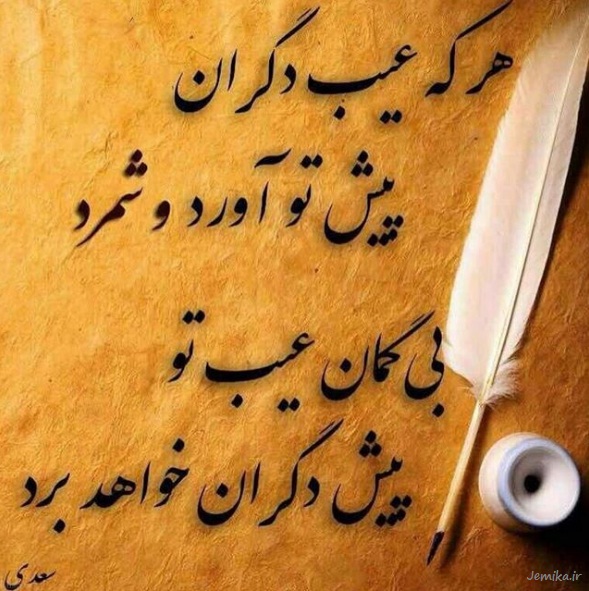 هر که عیب دگران
پیش تو آورد و شمرد
بی گمان عیب تو
پیش دگران خواهد برد
سعدی
Jemika.ir